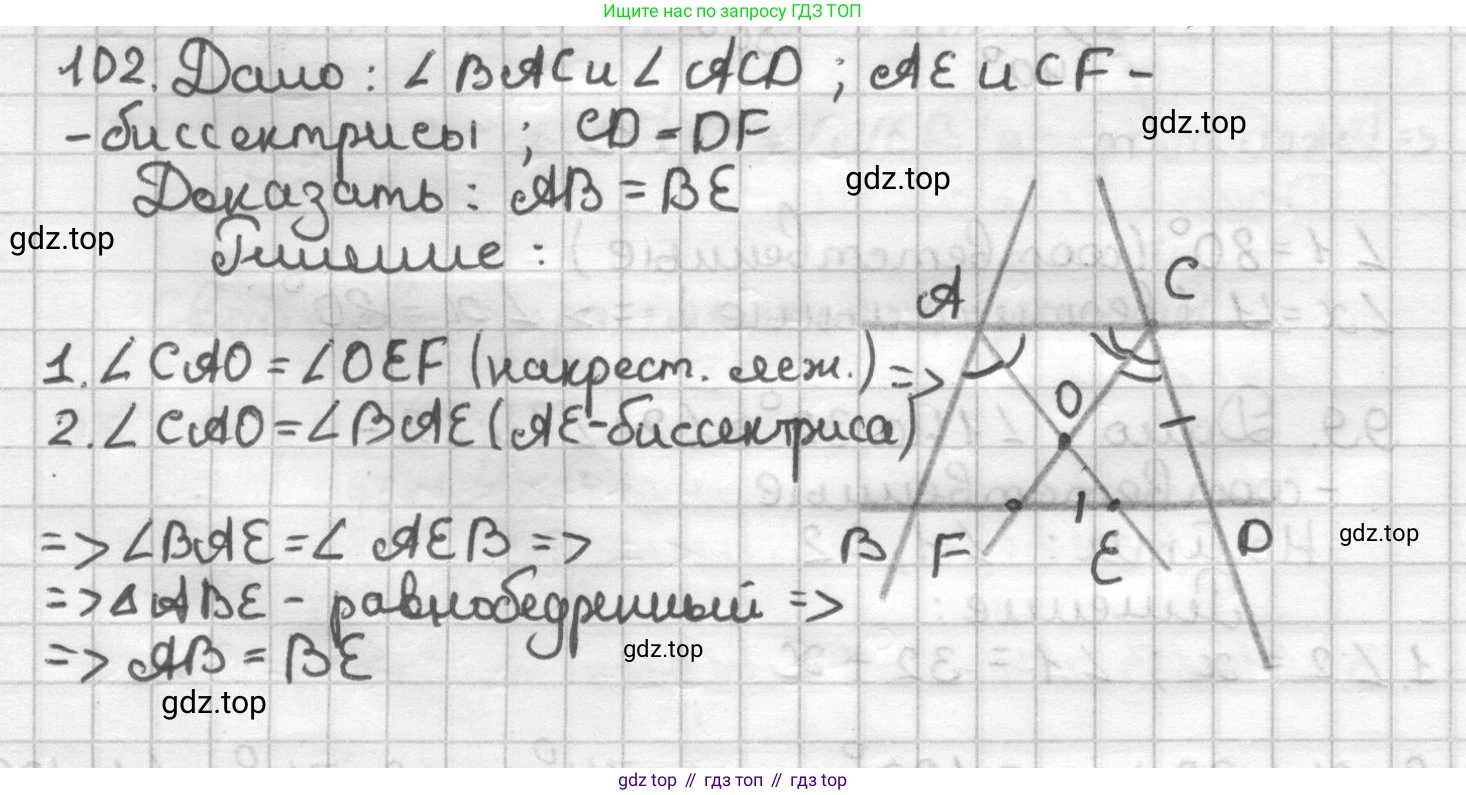 Ищите нас по запросу ГДЗ ТОП
102. Дано: ∠ BAC и ∠ ACD ; AE и CF -
- биссектрисы ; CD = DF
gdz.top
Доказать : AB = BE
gdz.top
gdz.top
Решение :
A
C
1. ∠ CAO = ∠ OEF (накрест. леж.) =>
O
2. ∠ CAO = ∠ BAE (AE-биссектриса)
=> ∠BAE = ∠ AEB =>
B F E D
gdz.top
=> Δ ABE - равнобедренный =>
gdz.top
=> AB = BE
gdz.top
gdz.top // гдз топ // гдз top